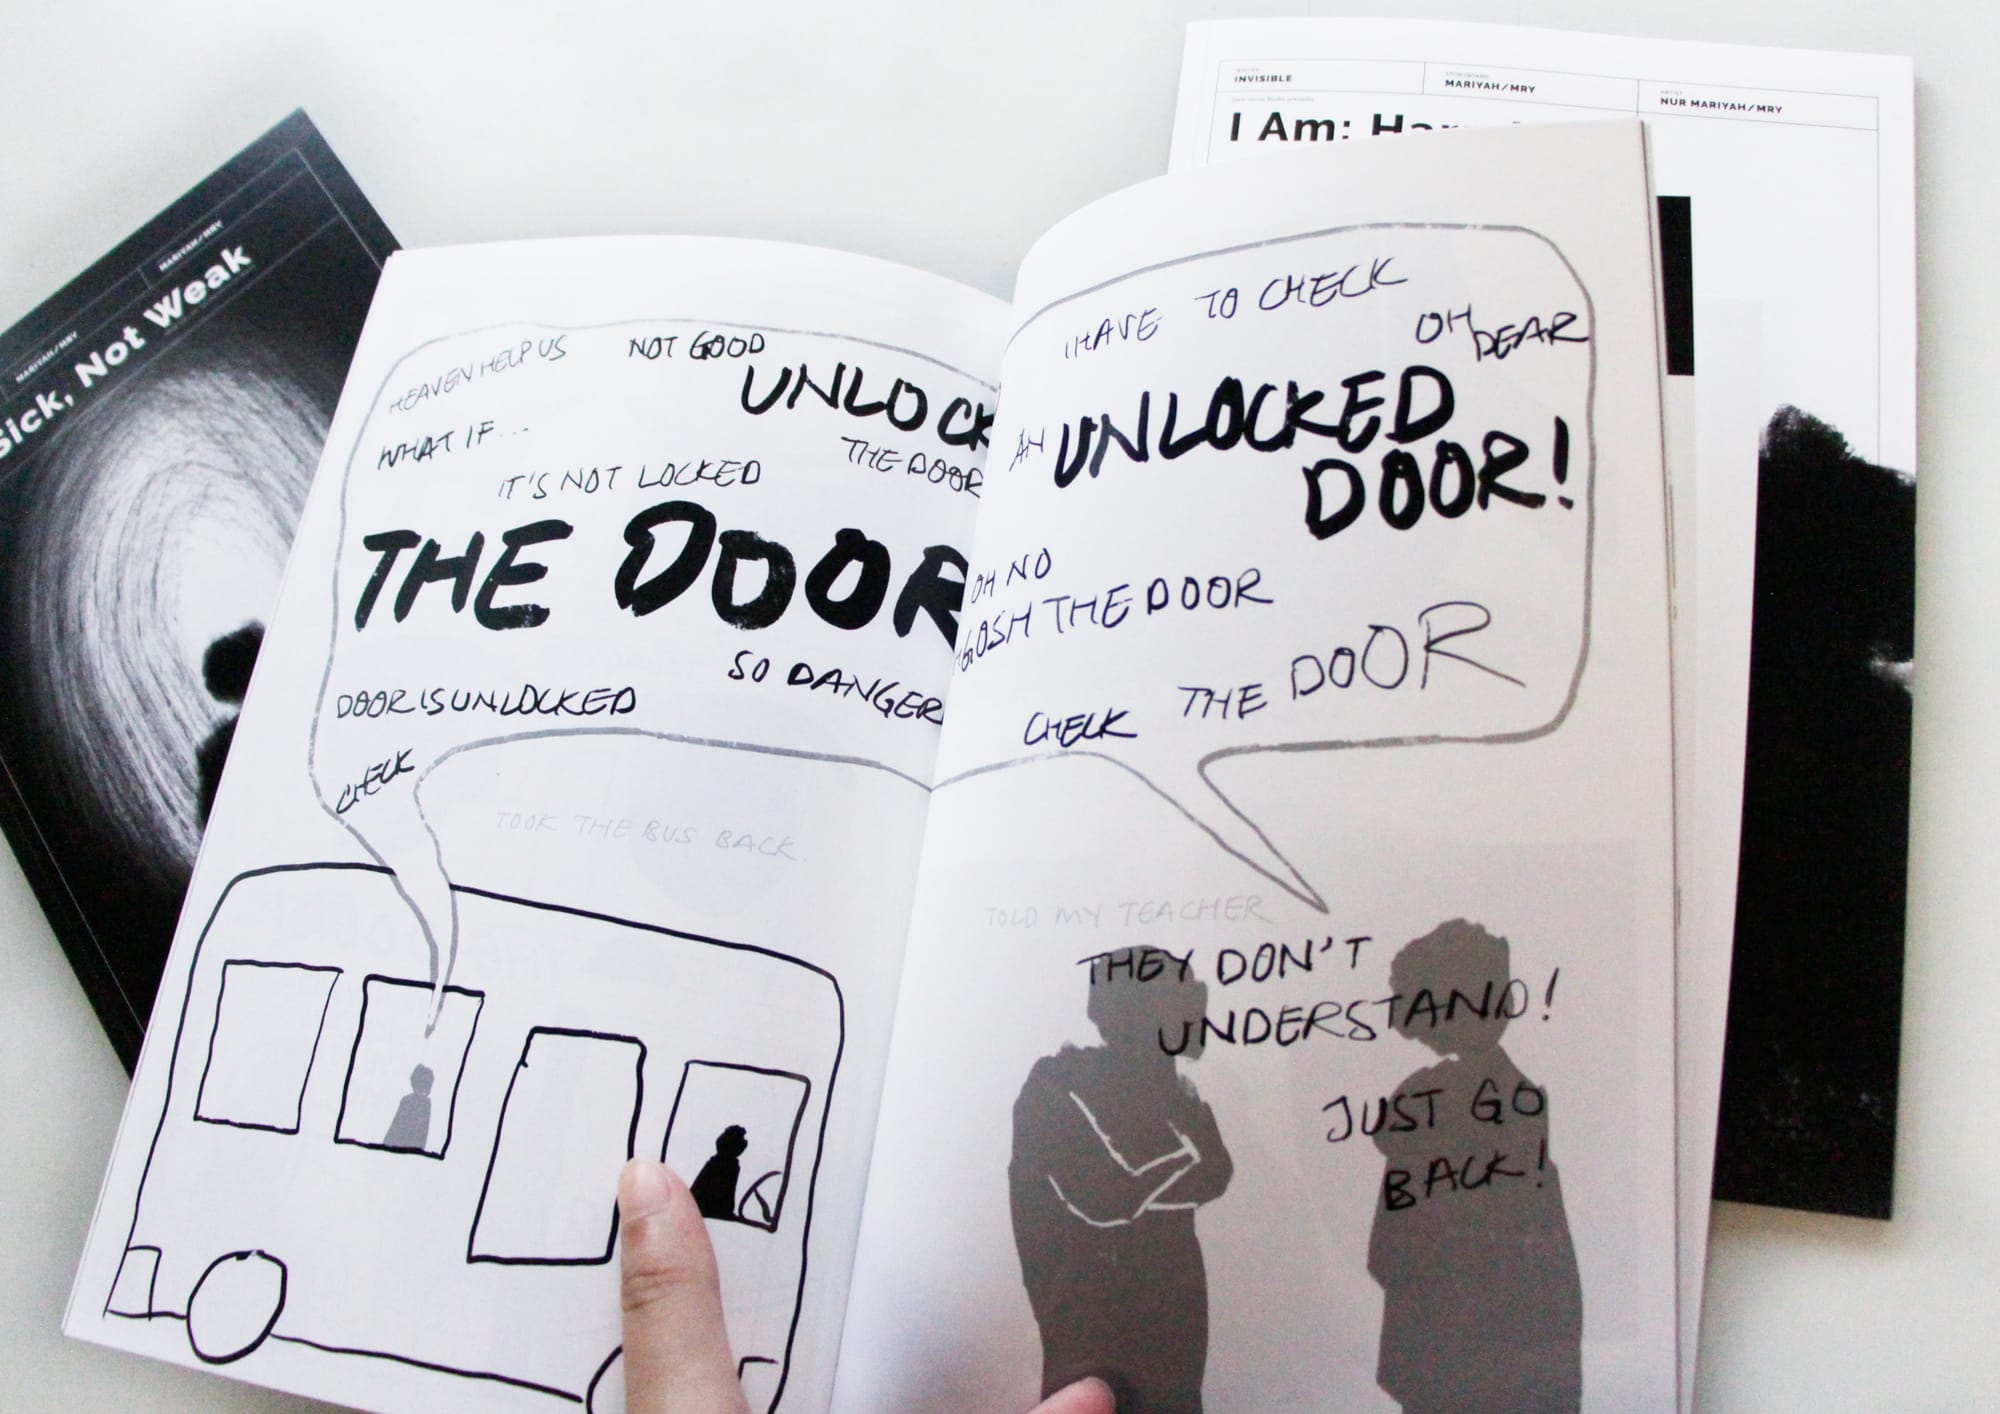 MARIYAH/MRY
MARIYAH/MRY
Sick, Not Weak
INVISIBLE
STORYBOARD
MARIYAH/MRY
ARTIST
NUR MARIYAH/MRY
I Am:
HEAVEN HELP US
NOT GOOD
UNLOCK
WHAT IF...
THE DOOR
IT'S NOT LOCKED
THE DOOR
SO DANGER
DOOR IS UNLOCKED
CHECK
TOOK THE BUS BACK.
I HAVE TO CHECK
OH DEAR
AN UNLOCKED
DOOR!
OH NO
GOSH THE DOOR
THE DOOR
CHECK
TOLD MY TEACHER
THEY DON'T
UNDERSTAND!
JUST GO
BACK!